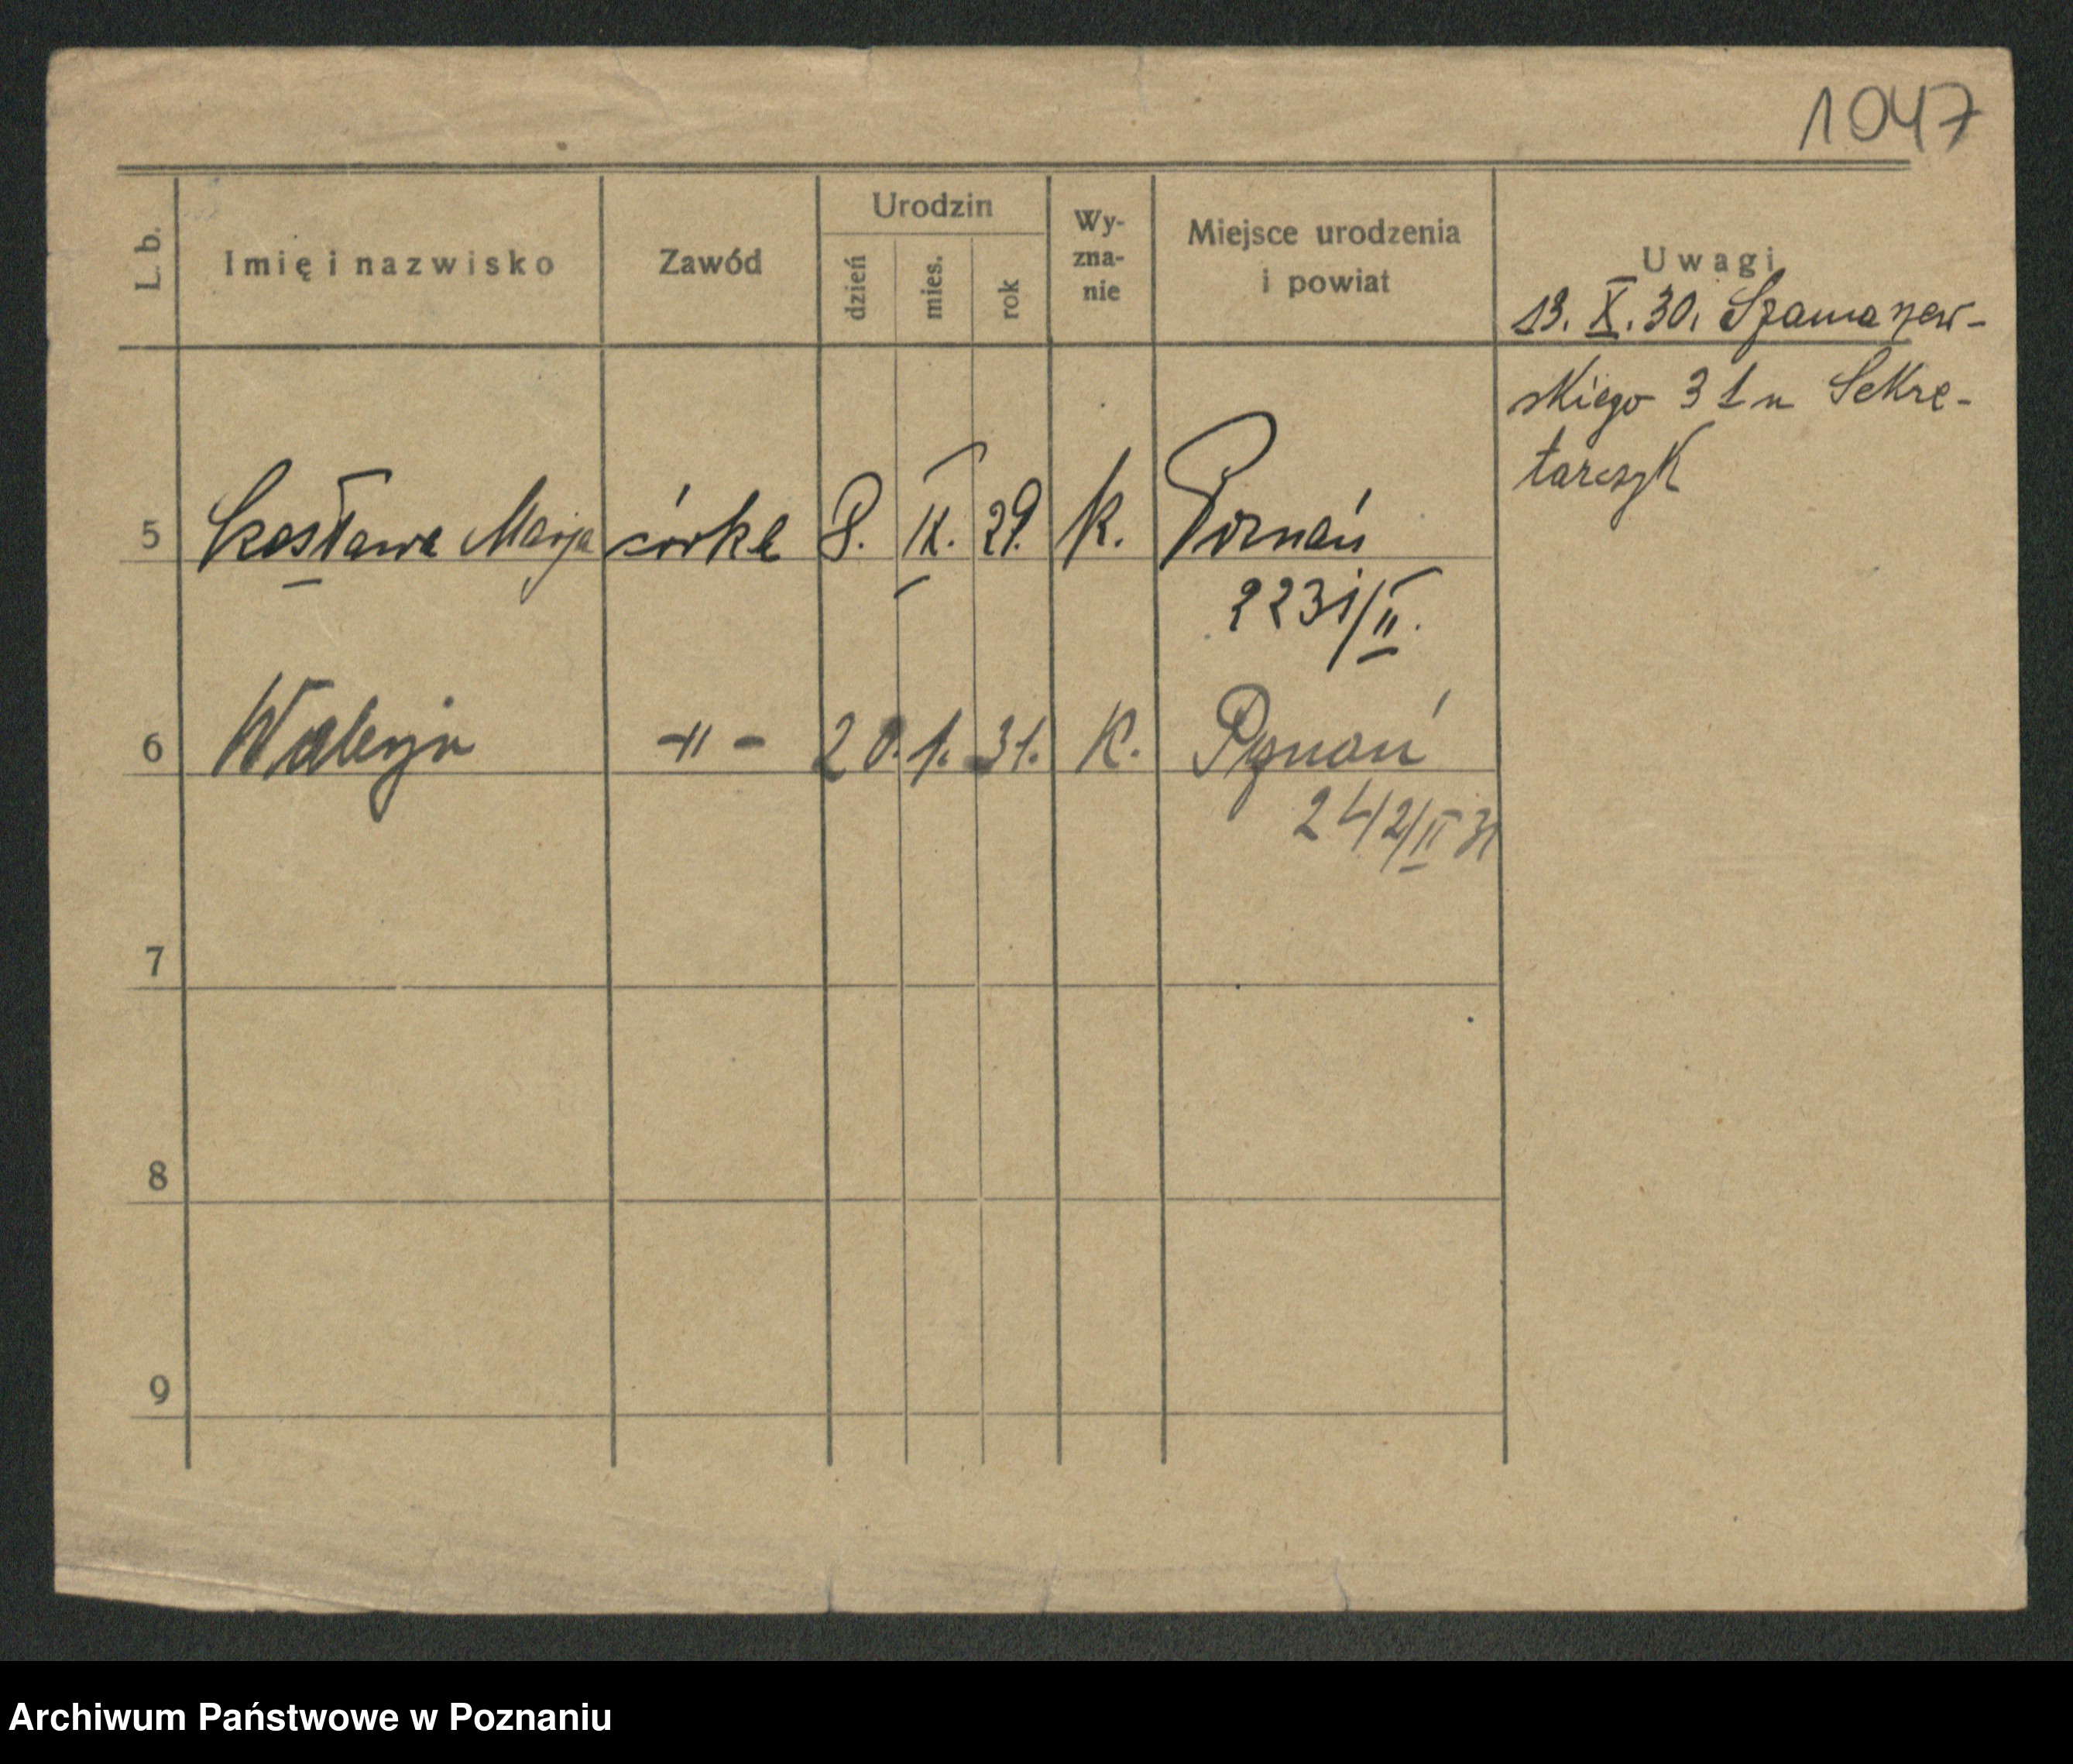 1047
L. b.
Imię i nazwisko
Zawód
Urodzin
dzień
mies.
rok
Wy-
zna-
nie
Miejsce urodzenia
i powiat
Uwagi
13. X. 30. Szamarzew-
skiego 31 u Sekre-
tarczyk
5 Czesława Marja córka 8. IX. 29. k. Poznań
2231/II.
6 Walerja -"- 20. 1. 31. K. Poznań
242/II 31
7
8
9
Archiwum Państwowe w Poznaniu